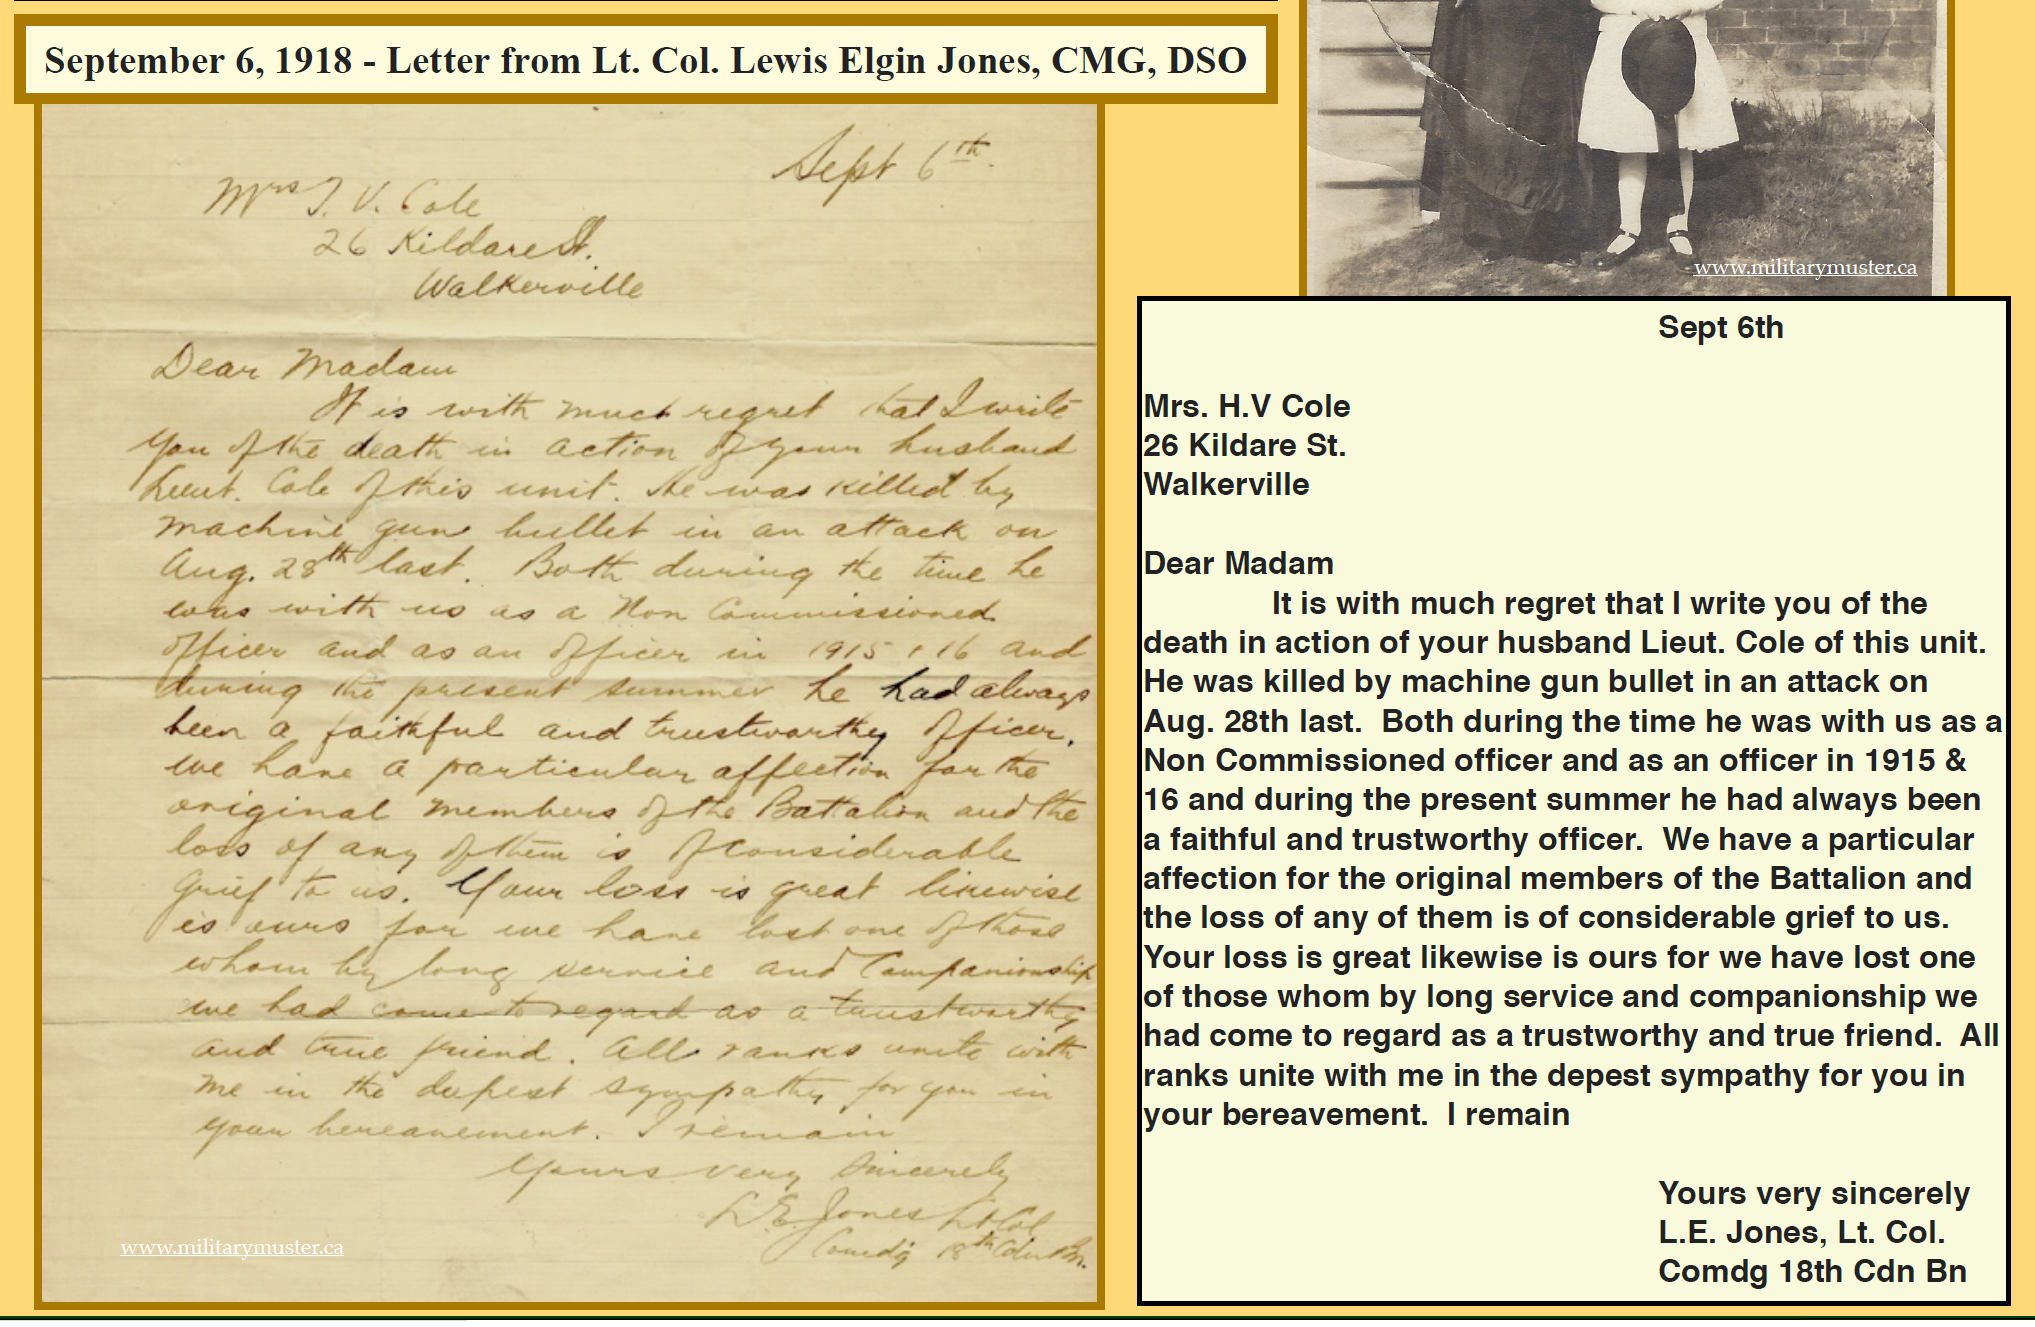 September 6, 1918 - Letter from Lt. Col. Lewis Elgin Jones, CMG, DSO
Sept 6th.
Mrs T. V. Cole
26 Kildare St.
Walkerville
Dear Madam
It is with much regret that I write
you of the death in action of your husband
Lieut. Cole of this unit. He was killed by
machine gun bullet in an attack on
Aug. 28th last. Both during the time he
was with us as a Non Commissioned
officer and as an officer in 1915 & 16 and
during the present summer he had always
been a faithful and trustworthy officer.
We have a particular affection for the
original members of the Battalion and the
loss of any of them is of considerable
grief to us. Your loss is great likewise
is ours for we have lost one of those
whom by long service and companionship
we had come to regard as a trustworthy
and true friend. All ranks unite with
me in the depest sympathy for you in
your bereavement. I remain
Yours very sincerely
L.E. Jones Lt. Col
Comdg 18th Cdn Bn.
www.militarymuster.ca
www.militarymuster.ca
Sept 6th
Mrs. H.V Cole
26 Kildare St.
Walkerville
Dear Madam
It is with much regret that I write you of the
death in action of your husband Lieut. Cole of this unit.
He was killed by machine gun bullet in an attack on
Aug. 28th last. Both during the time he was with us as a
Non Commissioned officer and as an officer in 1915 &
16 and during the present summer he had always been
a faithful and trustworthy officer. We have a particular
affection for the original members of the Battalion and
the loss of any of them is of considerable grief to us.
Your loss is great likewise is ours for we have lost one
of those whom by long service and companionship we
had come to regard as a trustworthy and true friend. All
ranks unite with me in the depest sympathy for you in
your bereavement. I remain
Yours very sincerely
L.E. Jones, Lt. Col.
Comdg 18th Cdn Bn